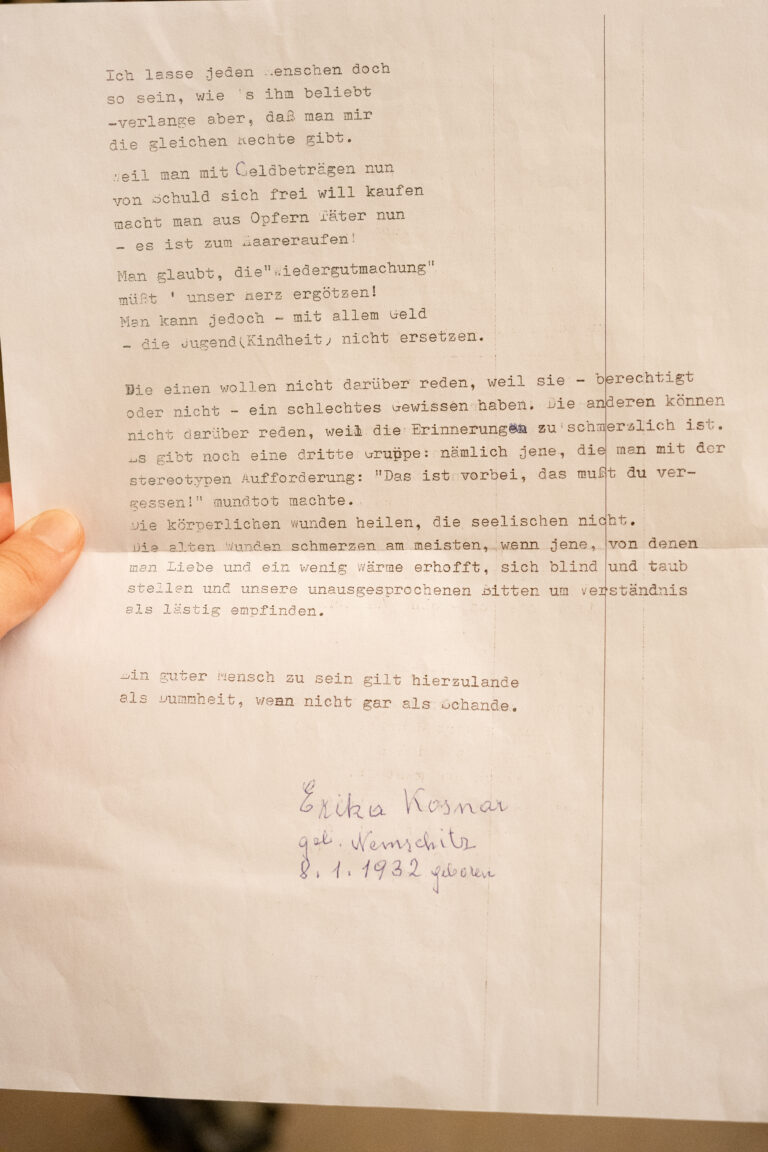 Ich lasse jeden Menschen doch
so sein, wie 's ihm beliebt
-verlange aber, daß man mir
die gleichen Rechte gibt.
Weil man mit Geldbeträgen nun
von Schuld sich frei will kaufen
macht man aus Opfern Täter nun
- es ist zum Haareraufen!
Man glaubt, die"Wiedergutmachung"
müßt ' unser Herz ergötzen!
Man kann jedoch - mit allem Geld
- die Jugend(Kindheit) nicht ersetzen.
Die einen wollen nicht darüber reden, weil sie - berechtigt
oder nicht - ein schlechtes Gewissen haben. Die anderen können
nicht darüber reden, weil die Erinnerungen zu schmerzlich ist.
Es gibt noch eine dritte Gruppe: nämlich jene, die man mit der
stereotypen Aufforderung: "Das ist vorbei, das mußt du ver-
gessen!" mundtot machte.
Die körperlichen Wunden heilen, die seelischen nicht.
Die alten Wunden schmerzen am meisten, wenn jene, von denen
man Liebe und ein wenig Wärme erhofft, sich blind und taub
stellen und unsere unausgesprochenen Bitten um Verständnis
als lästig empfinden.
Ein guter Mensch zu sein gilt hierzulande
als Dummheit, wenn nicht gar als Schande.
Erika Kosnar
geb. Nemschitz
8.1.1932 geboren